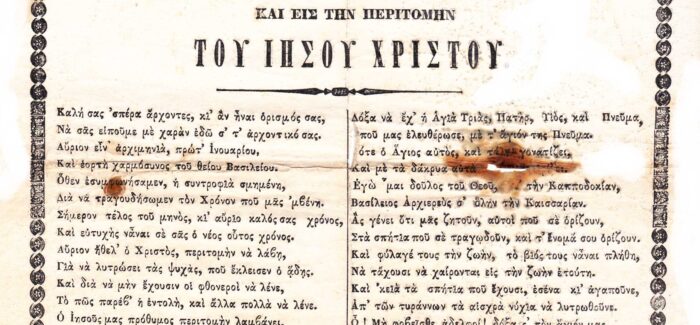 ΚΑΙ ΕΙΣ ΤΗΝ ΠΕΡΙΤΟΜΗΝ
ΤΟΥ ΙΗΣΟΥ ΧΡΙΣΤΟΥ
Καλή σας ᾿σπέρα ἄρχοντες, κι᾿ ἂν ἦναι ὁρισμός σας,
Νὰ σᾶς εἰποῦμε μὲ χαρὰν ἐδῶ σ᾿ τ᾿ ἀρχοντικό σας.
Αὔριον εἶν᾿ ἀρχιμηνιὰ, πρώτ᾿ Ἰνουαρίου,
Καὶ ἑορτὴ χαρμόσυνος τοῦ θείου Βασιλείου.
Ὅθεν ἐσυμφωνήσαμεν, ἡ συντροφιὰ σμημένη,
Διὰ νὰ τραγουδήσωμεν τὸν Χρόνον ποῦ μᾶς ᾿μβένη.
Σήμερον τέλος τοῦ μηνὸς, κι᾿ αὔριο καλός σας χρόνος,
Καὶ εὐτυχὴς νἆναι σὲ σᾶς ὁ νέος οὗτος χρόνος.
Αὔριον ἤθελ᾿ ὁ Χριστὸς, περιτομὴν νὰ λάβῃ,
Γιὰ νὰ λυτρώσει τὰς ψυχὰς, ποῦ ἔκλεισεν ὁ ᾅδης.
Καὶ διὰ νὰ μὴν ἔχουσιν οἱ φθονεροὶ νὰ λένε.
Τὸ πῶς παρέβ᾿ ἡ ἐντολὴ, καὶ ἄλλα πολλὰ νὰ λένε.
Ὁ Ἰησοῦς μας πρόθυμος περιτομὴν λαμβάνει.
Δόξα νὰ ἔχ᾿ ἡ Ἁγιὰ Τριὰς, Πατὴρ, Υἱὸς, καὶ Πνεῦμα,
ποῦ μας ἐλευθέρωσε, μὲ τ᾿ ἅγιόν της Πνεῦμα.
ότε ὁ Ἅγιος αὐτὸς, καὶ γονατίζει,
Καὶ μὲ τὰ δάκρυα αὐτὰ
Ἐγὼ ᾿μαι δοῦλος τοῦ Θεοῦ, τὴν Καππαδοκίαν,
Βασίλειος Ἀρχιερεὺς σ᾿ ὅλην τὴν Καισσαρίαν.
Ἂς γένει ὅτι μᾶς ζητοῦν, αὐτοὶ ποῦ σὲ ὁρίζουν,
Στὰ σπήτια ποῦ σὲ τραγωδοῦν, καὶ τ᾿ ὄνομά σου ὁρίζουν.
Καὶ φύλαγέ τους τὴν ζωὴν, τὸ βιός τους νἆναι πλήθη,
Νὰ τἄχουσι νὰ χαίρονται εἰς τὴν ζωὴν ἐτούτη.
Καὶ ᾿κειὰ τὰ σπήτια ποῦ ἔχουσι, ἐσένα κι᾿ ἀγαποῦνε,
Ἀπ᾿ τῶν τυράννων τὰ αἰσχρὰ νύχια νὰ λυτρωθοῦνε.